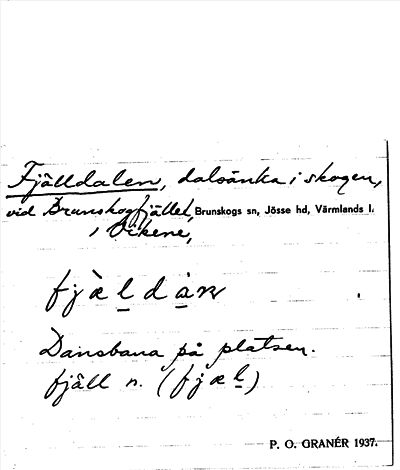 Fjälldalen, dalsänka i skogen,
vid Brunskogfjället, Brunskogs sn, Jösse hd, Värmlands l.
i Vikene,
fjæ̀l̠dà̠n
Dansbana på platsen.
fjäll n. (fjæl̠)
P. O. GRANÉR 1937.